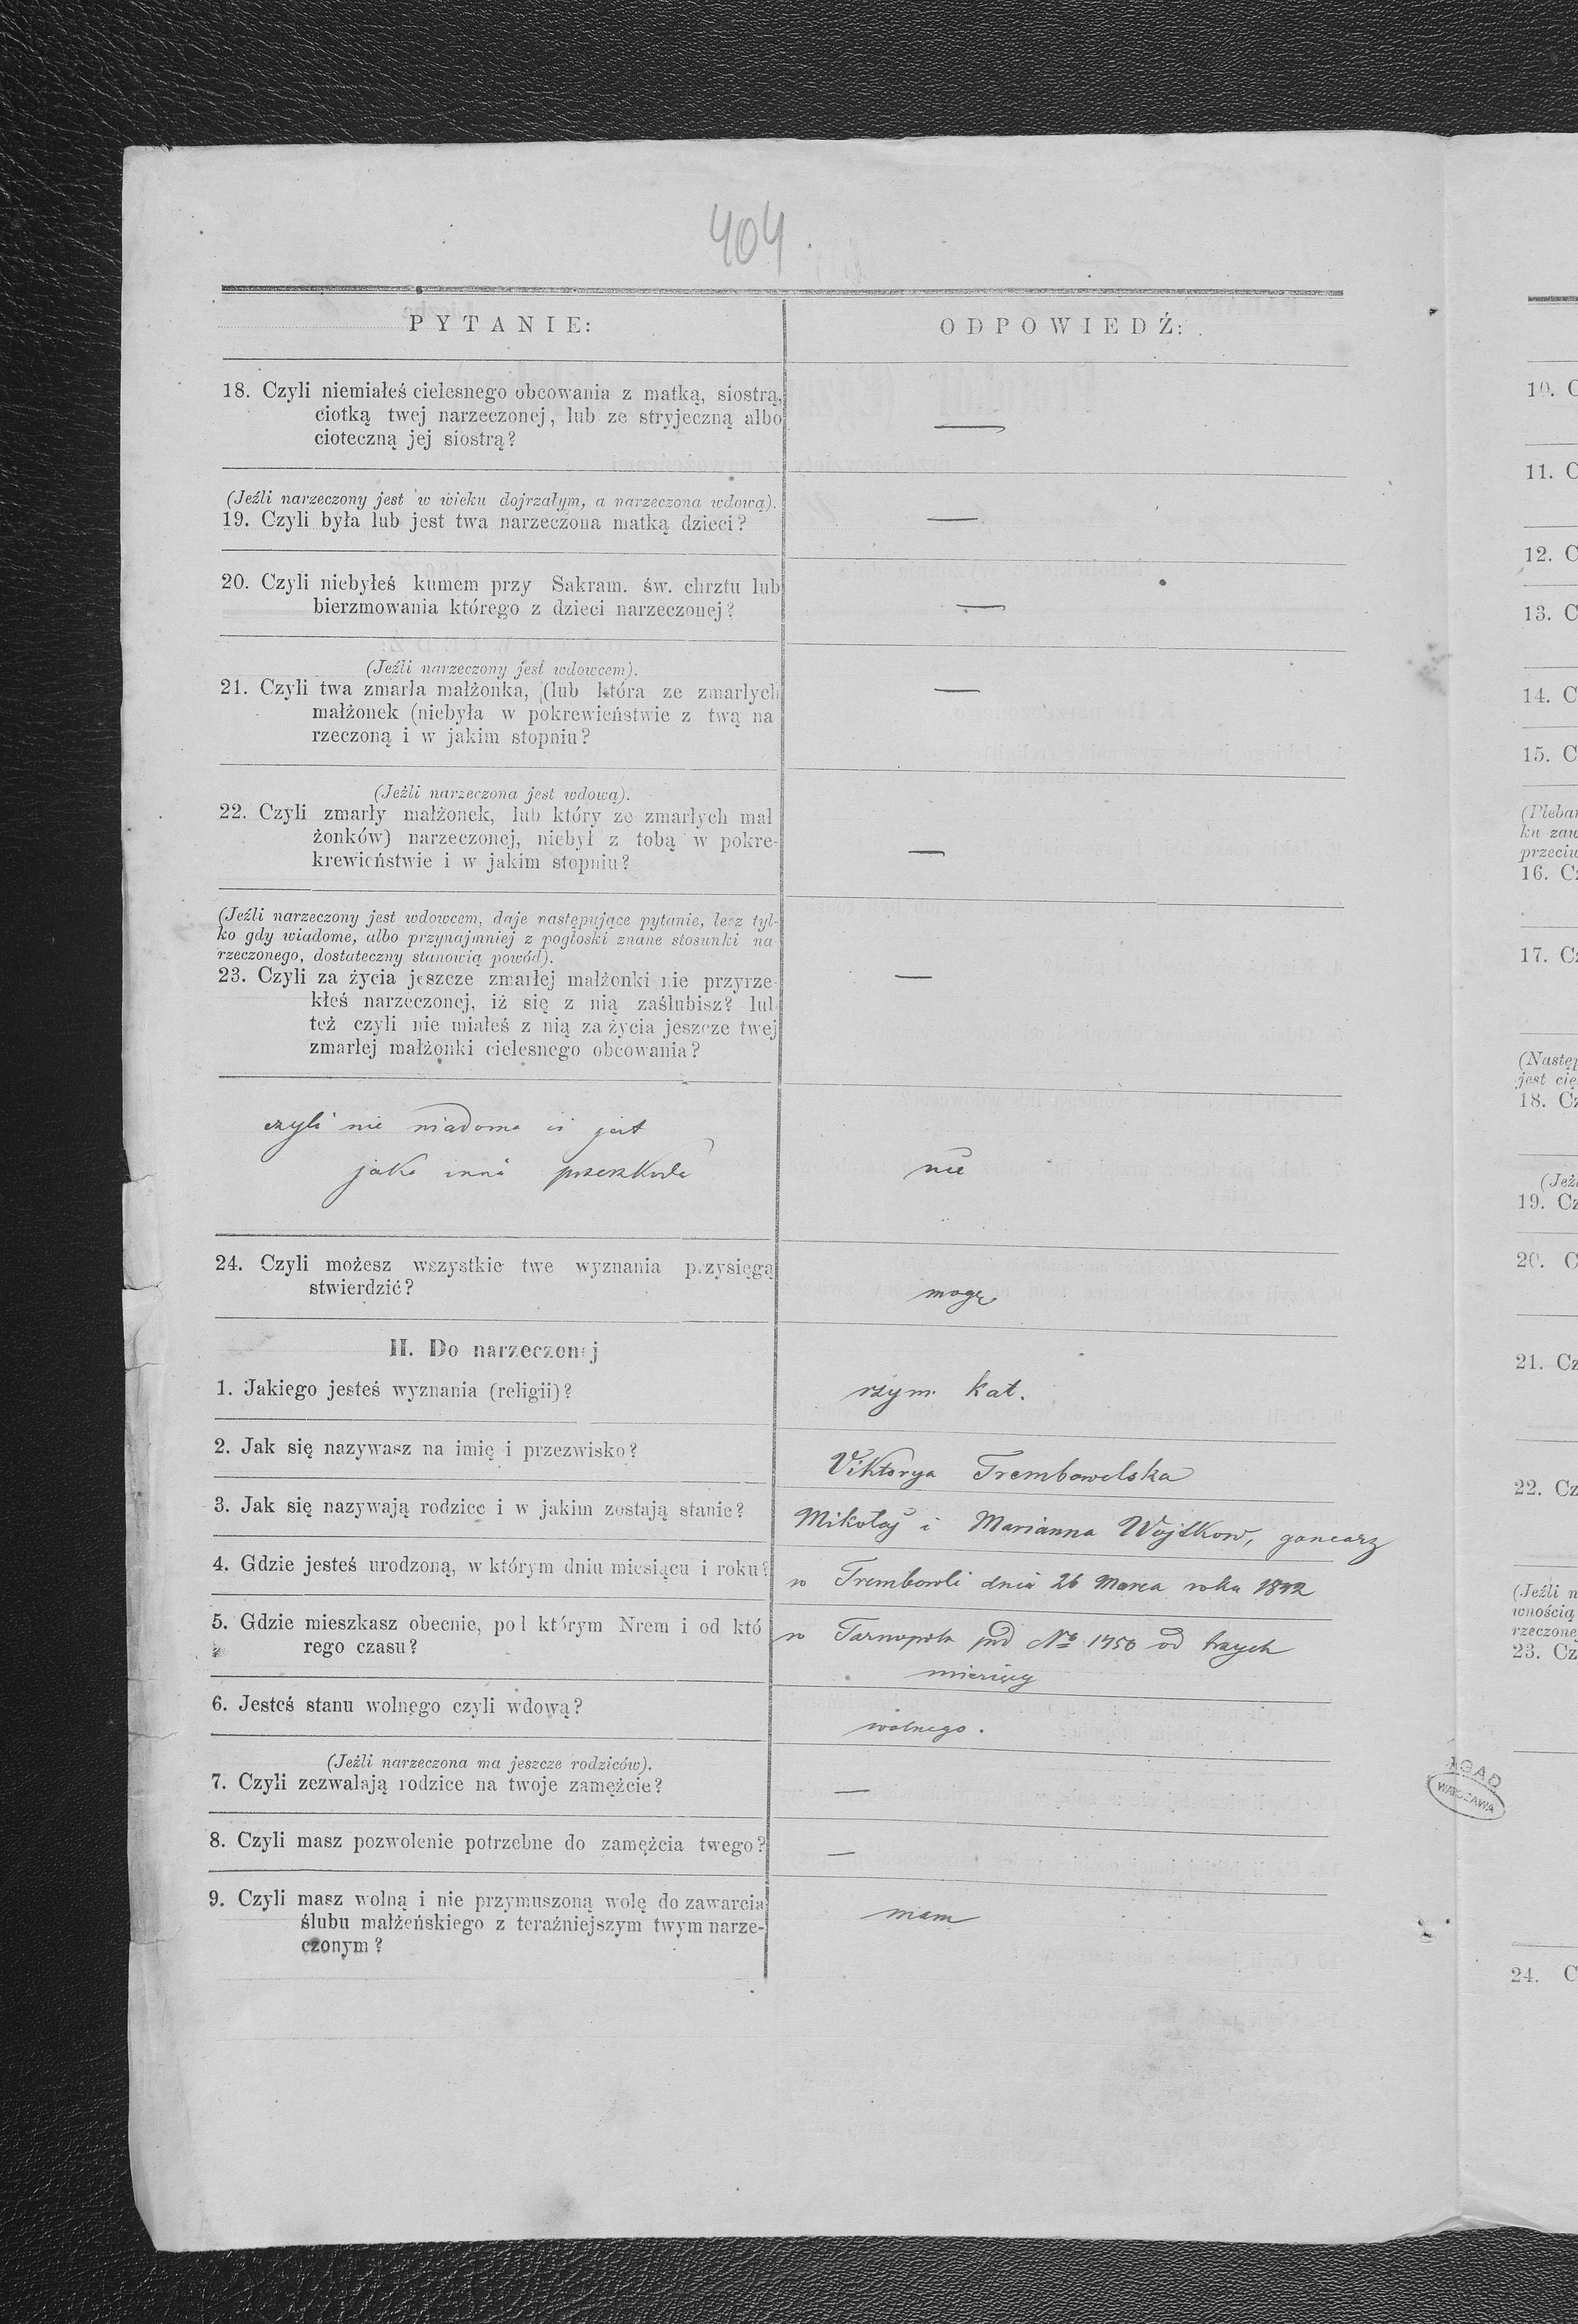 404.
PYTANIE:
ODPOWIEDŹ:
18. Czyli niemiałeś cielesnego obcowania z matką, siostrą,
ciotką twej narzeczonej, lub ze stryjeczną albo
cioteczną jej siostrą?
—
(Jeźli narzeczony jest w wieku dojrzałym, a narzeczona wdową).
19. Czyli była lub jest twa narzeczona matką dzieci?
—
20. Czyli niebyłeś kumem przy Sakram. św. chrztu lub
bierzmowania którego z dzieci narzeczonej?
—
(Jeźli narzeczony jest wdowcem).
21. Czyli twa zmarła małżonka, (lub która ze zmarłych
małżonek (niebyła w pokrewieństwie z twą na
rzeczoną i w jakim stopniu?
—
(Jeźli narzeczona jest wdową).
22. Czyli zmarły małżonek, lub który ze zmarłych mał
żonków) narzeczonej, niebył z tobą w pokre-
krewieństwie i w jakim stopniu?
—
(Jeźli narzeczony jest wdowcem, daje następujące pytanie, lecz tyl-
ko gdy wiadome, albo przynajmniej z pogłoski znane stosunki na
rzeczonego, dostateczny stanowią powód).
23. Czyli za życia jeszcze zmarłej małżonki nie przyrze-
kłeś narzeczonej, iż się z nią zaślubisz? lub
też czyli nie miałeś z nią za życia jeszcze twej
zmarłej małżonki cielesnego obcowania?
—
czyli nie wiadoma ci jest
jaka inna przeszkoda
nie
24. Czyli możesz wszystkie twe wyznania przysięgą
stwierdzić?
mogę
II. Do narzeczonej
1. Jakiego jesteś wyznania (religii)?
rzym. kat.
2. Jak się nazywasz na imię i przezwisko?
Viktorya Trembowelska
3. Jak się nazywają rodzice i w jakim zostają stanie?
Mikołaj i Marianna Wojtkow, garncarz
4. Gdzie jesteś urodzoną, w którym dniu miesiącu i roku?
w Trembowli dnia 26 Marca roku 1842
5. Gdzie mieszkasz obecnie, pod którym Nrem i od któ
rego czasu?
w Tarnopolu pod No 1750 od trzech
miesięcy
6. Jesteś stanu wolnego czyli wdową?
wolnego.
(Jeźli narzeczona ma jeszcze rodziców).
7. Czyli zezwalają rodzice na twoje zamężcie?
—
8. Czyli masz pozwolenie potrzebne do zamężcia twego?
—
9. Czyli masz wolną i nie przymuszoną wolę do zawarcia
ślubu małżeńskiego z teraźniejszym twym narze-
czonym?
mam
AGAD
WARSZAWA
10. C
11. C
12. C
13. C
14. C
15. C
(Pleban
ku zaw
przeciw
16. Cz
17. Cz
(Następ
jest cię
18. Cz
(Jeź
19. Cz
20. C
21. Cz
22. Cz
(Jeźli n
wnością
rzeczone
23. Cz
24. C